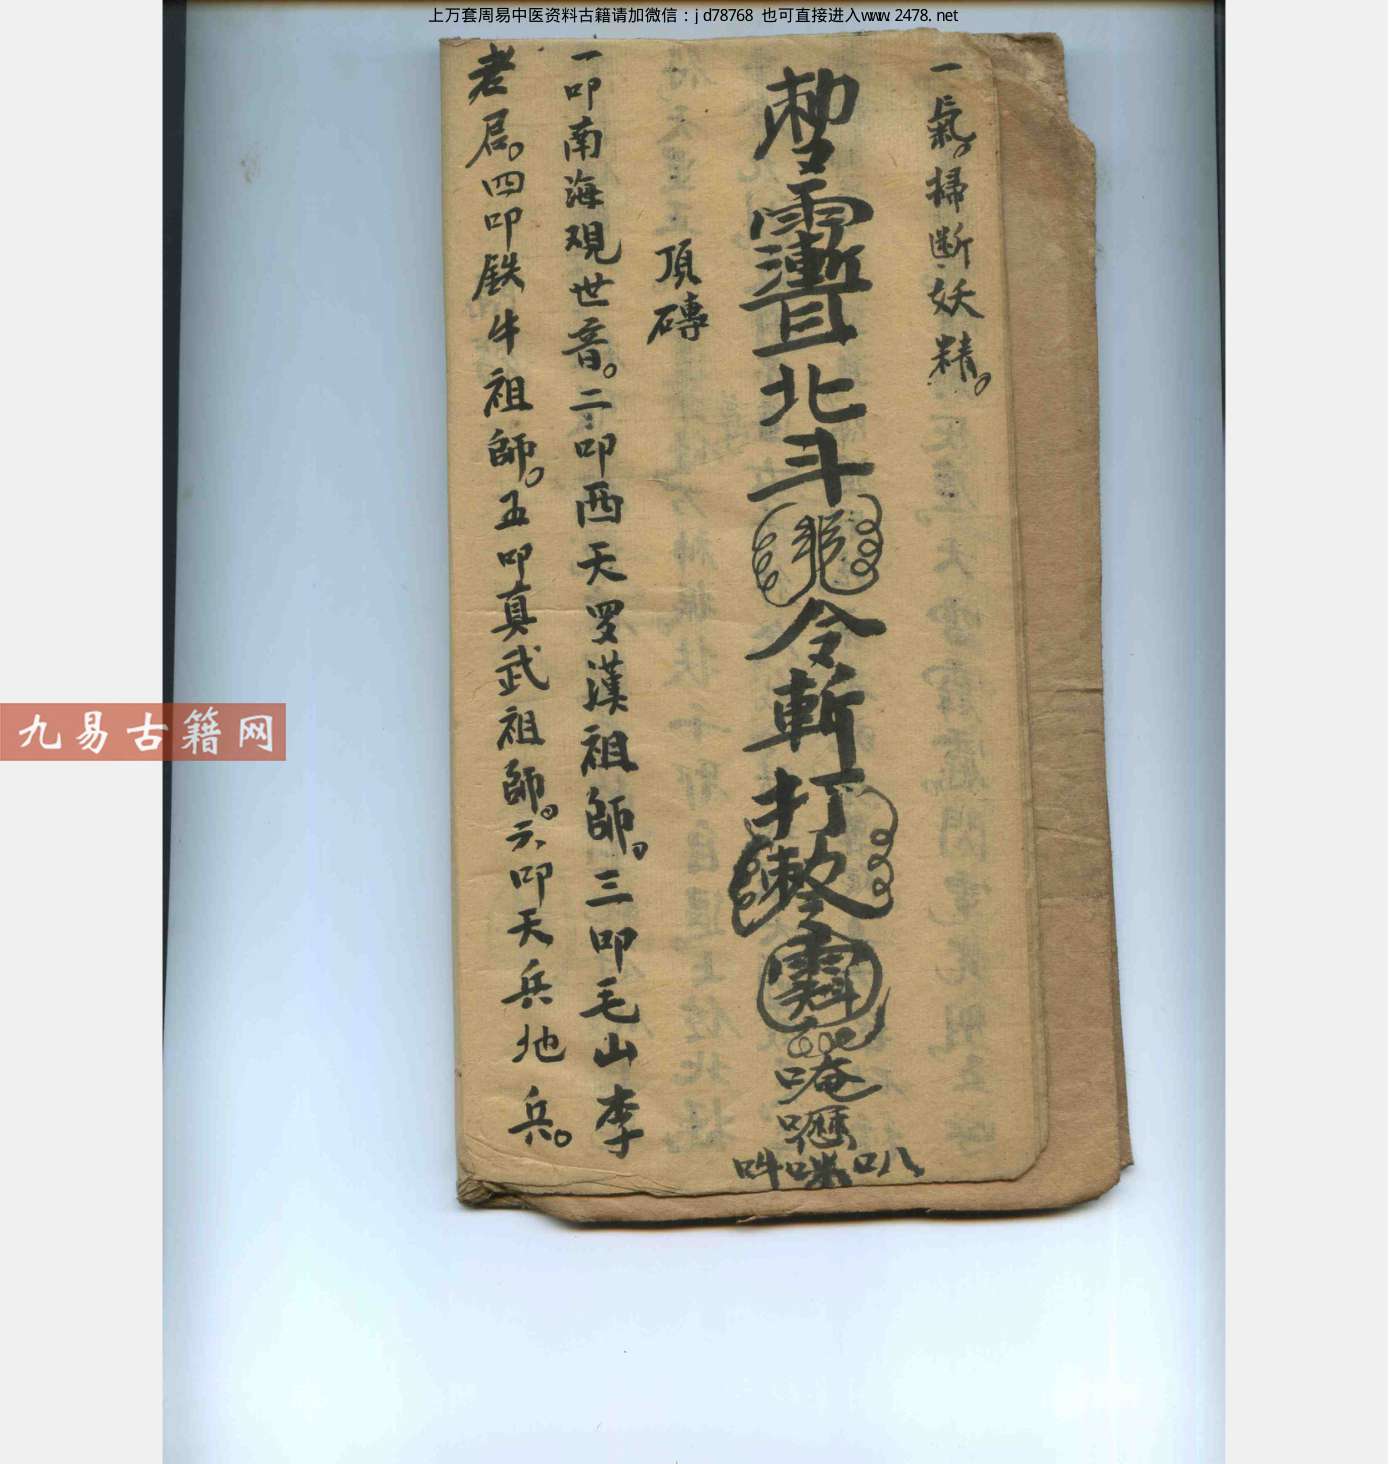 上万套周易中医资料古籍请加微信：jd78768 也可直接进入www.2478.net
一氣。掃断妖精。
北斗 令斬打 唵 吽 叭
頂磚
一叩南海观世音。二叩西天罗漢祖師。三叩毛山李
老君。四叩铁牛祖師。五叩真武祖師。六叩天兵地兵。
九易古籍网